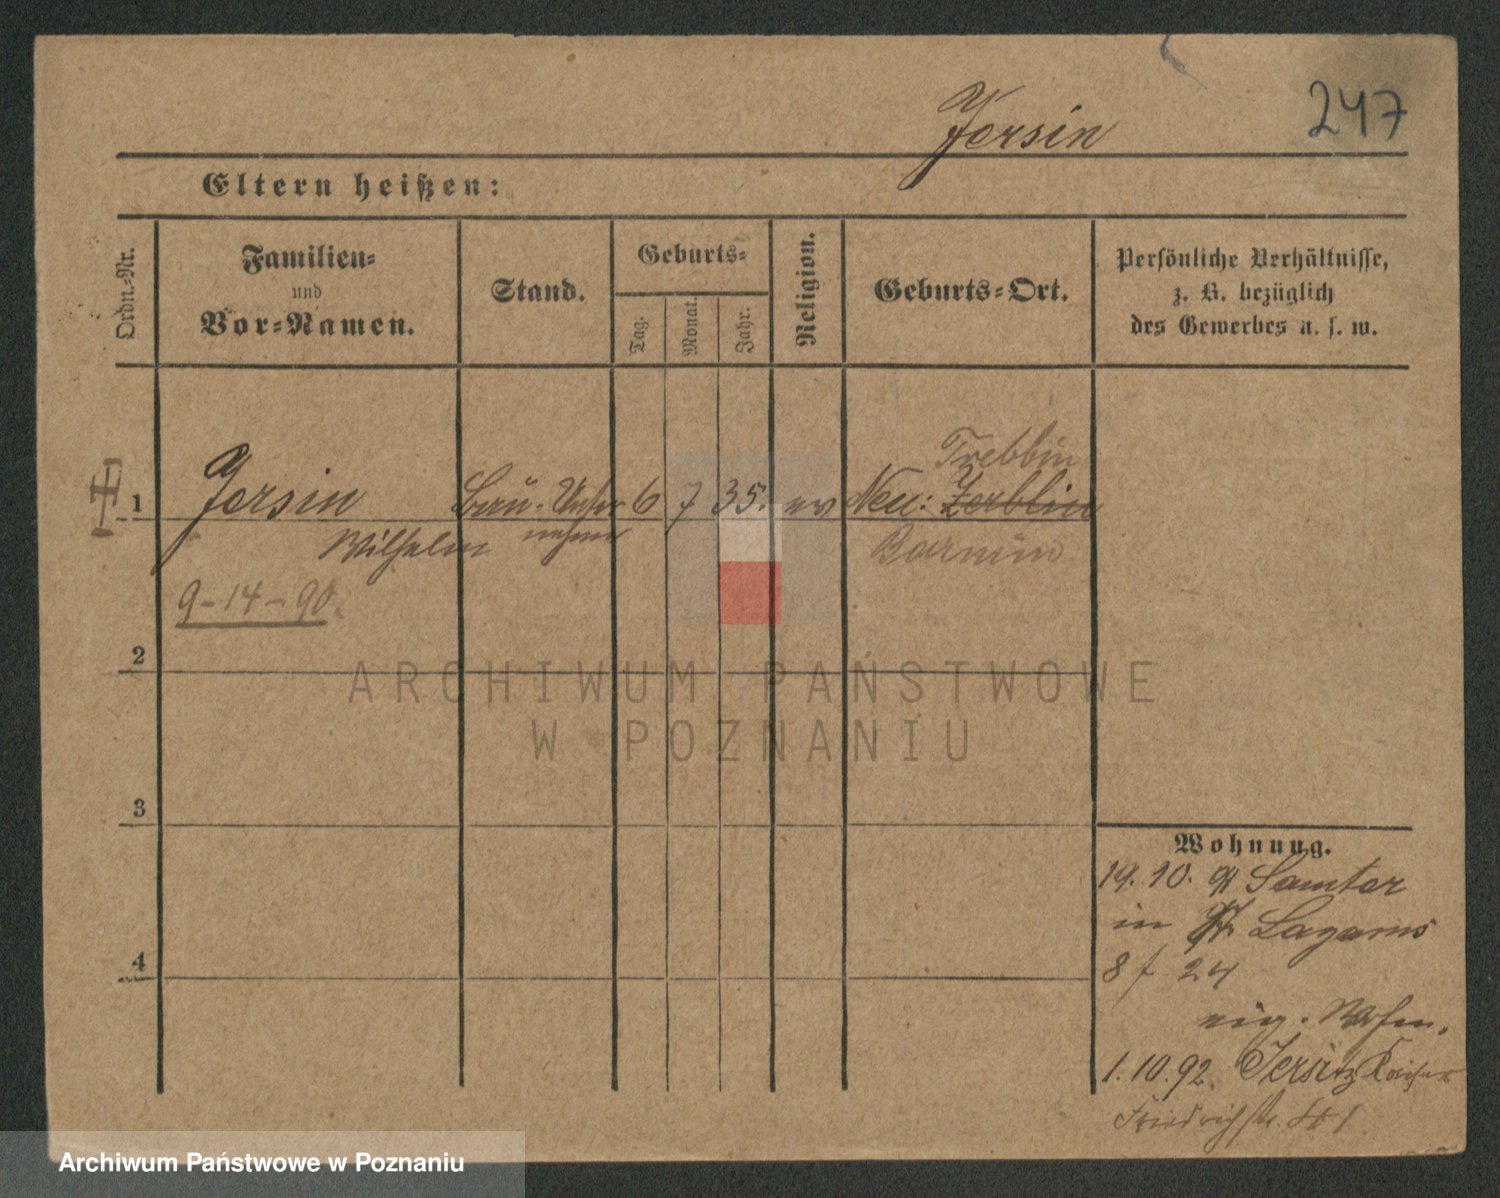 247
Jersin
Eltern heißen:
Ordn.-Nr.
Familien-
und
Vor-Namen.
Stand.
Geburts-
Tag.
Monat.
Jahr.
Religion.
Geburts-Ort.
Persönliche Verhältnisse,
z. B. bezüglich
des Gewerbes u. s. w.
Trebbin
1 Jersin Bau-Unter 6 7 35. ev Neu: Zerblin
Wilhelm nehmer Barnim
9-14-90
2
ARCHIWUM PAŃSTWOWE
W POZNANIU
3
Wohnung.
19. 10. 91 Samter
in St. Lazarus
8 f 24
eig. Wohn.
1. 10. 92. Jersitz Kaiser
Friedrichstr.
4
Archiwum Państwowe w Poznaniu